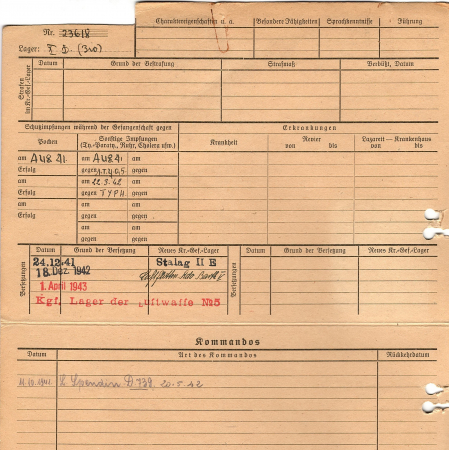 Nr. 23618
Charaktereigenschaften u. a. Besondere Fähigkeiten Sprachkenntnisse Führung
Lager: X D. (310)
Strafen im Kr.-Gef.-Lager Datum Grund der Bestrafung Strafmaß Verbüßt, Datum
Schutzimpfungen während der Gefangenschaft gegen Erkrankungen
Pocken Sonstige Impfungen (Ty.-Paraty., Ruhr, Cholera usw.) Krankheit Revier von bis Lazarett — Krankenhaus von bis
am AUG 41. am AUG 41 am
Erfolg gegen gegen
am am 22.3.42 am
Erfolg gegen TYPH. gegen
am am am
Erfolg gegen gegen
am am
gegen gegen
Versetzungen Datum Grund der Versetzung Neues Kr.-Gef.-Lager Versetzungen Datum Grund der Versetzung Neues Kr.-Gef.-Lager
24.12.41 Stalag II E
18. Dez. 1942
1. April 1943
Kgf. Lager der Luftwaffe №5
Kommandos
Datum Art des Kommandos Rückkehrdatum
D 739 20-5-42